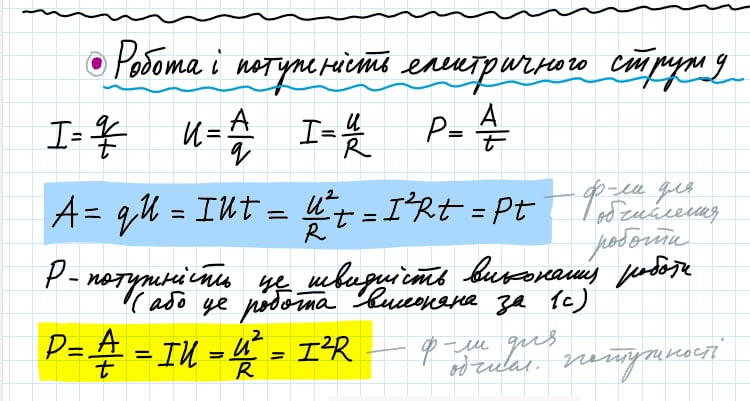 Робота і потужність електричного струму
I = q/t U = A/q I = U/R P = A/t
A = qU = IUt = U²/R t = I²Rt = Pt — ф-ли для обчислення роботи
P - потужність це швидкість виконання роботи
(або це робота виконана за 1с)
P = A/t = IU = U²/R = I²R — ф-ли для обчисл. потужності